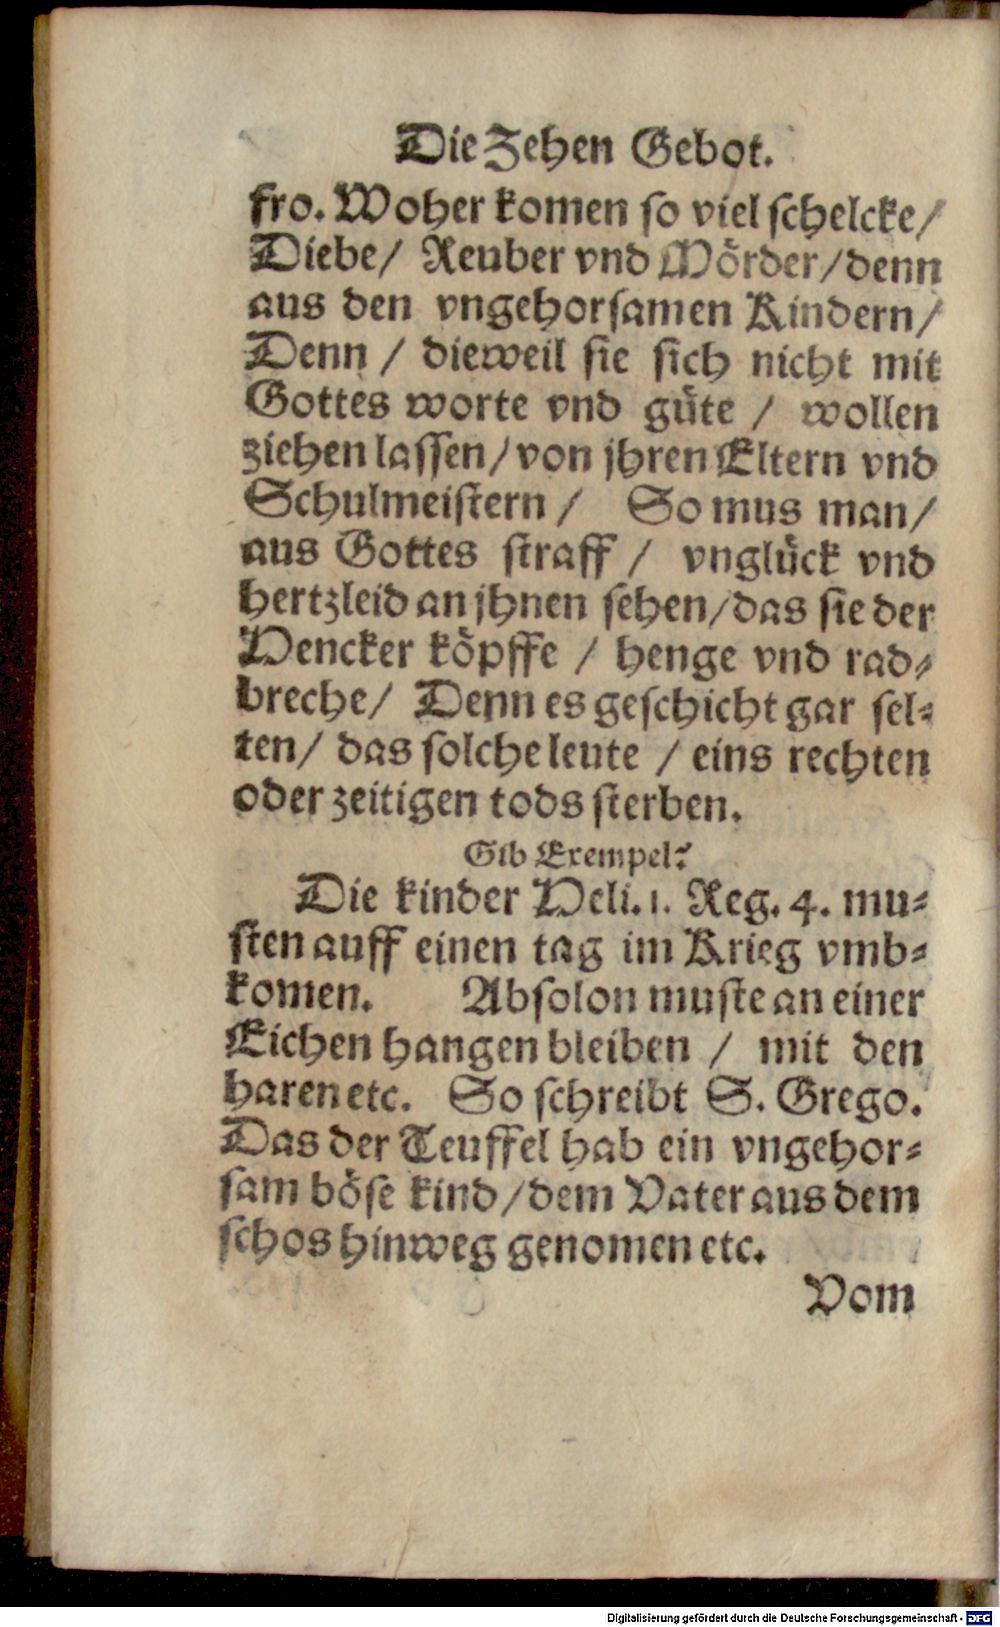 Die Zehen Gebot.
fro. Woher komen so viel schelcke/
Diebe/ Reuber vnd Mörder/denn
aus den vngehorsamen Kindern/
Denn / dieweil sie sich nicht mit
Gottes worte vnd güte / wollen
ziehen lassen/von jhren Eltern vnd
Schulmeistern / So mus man/
aus Gottes straff / vnglück vnd
hertzleid an jhnen sehen/das sie der
Hencker köpffe / henge vnd rad-
breche/ Denn es geschicht gar sel-
ten/ das solche leute / eins rechten
oder zeitigen tods sterben.
Gib Exempel?
Die kinder Heli. 1. Reg. 4. mu-
sten auff einen tag im Krieg vmb-
komen. Absolon muste an einer
Eichen hangen bleiben / mit den
haren etc. So schreibt S. Grego.
Das der Teuffel hab ein vngehor-
sam böse kind/dem Vater aus dem
schos hinweg genomen etc.
Vom
Digitalisierung gefördert durch die Deutsche Forschungsgemeinschaft - DFG